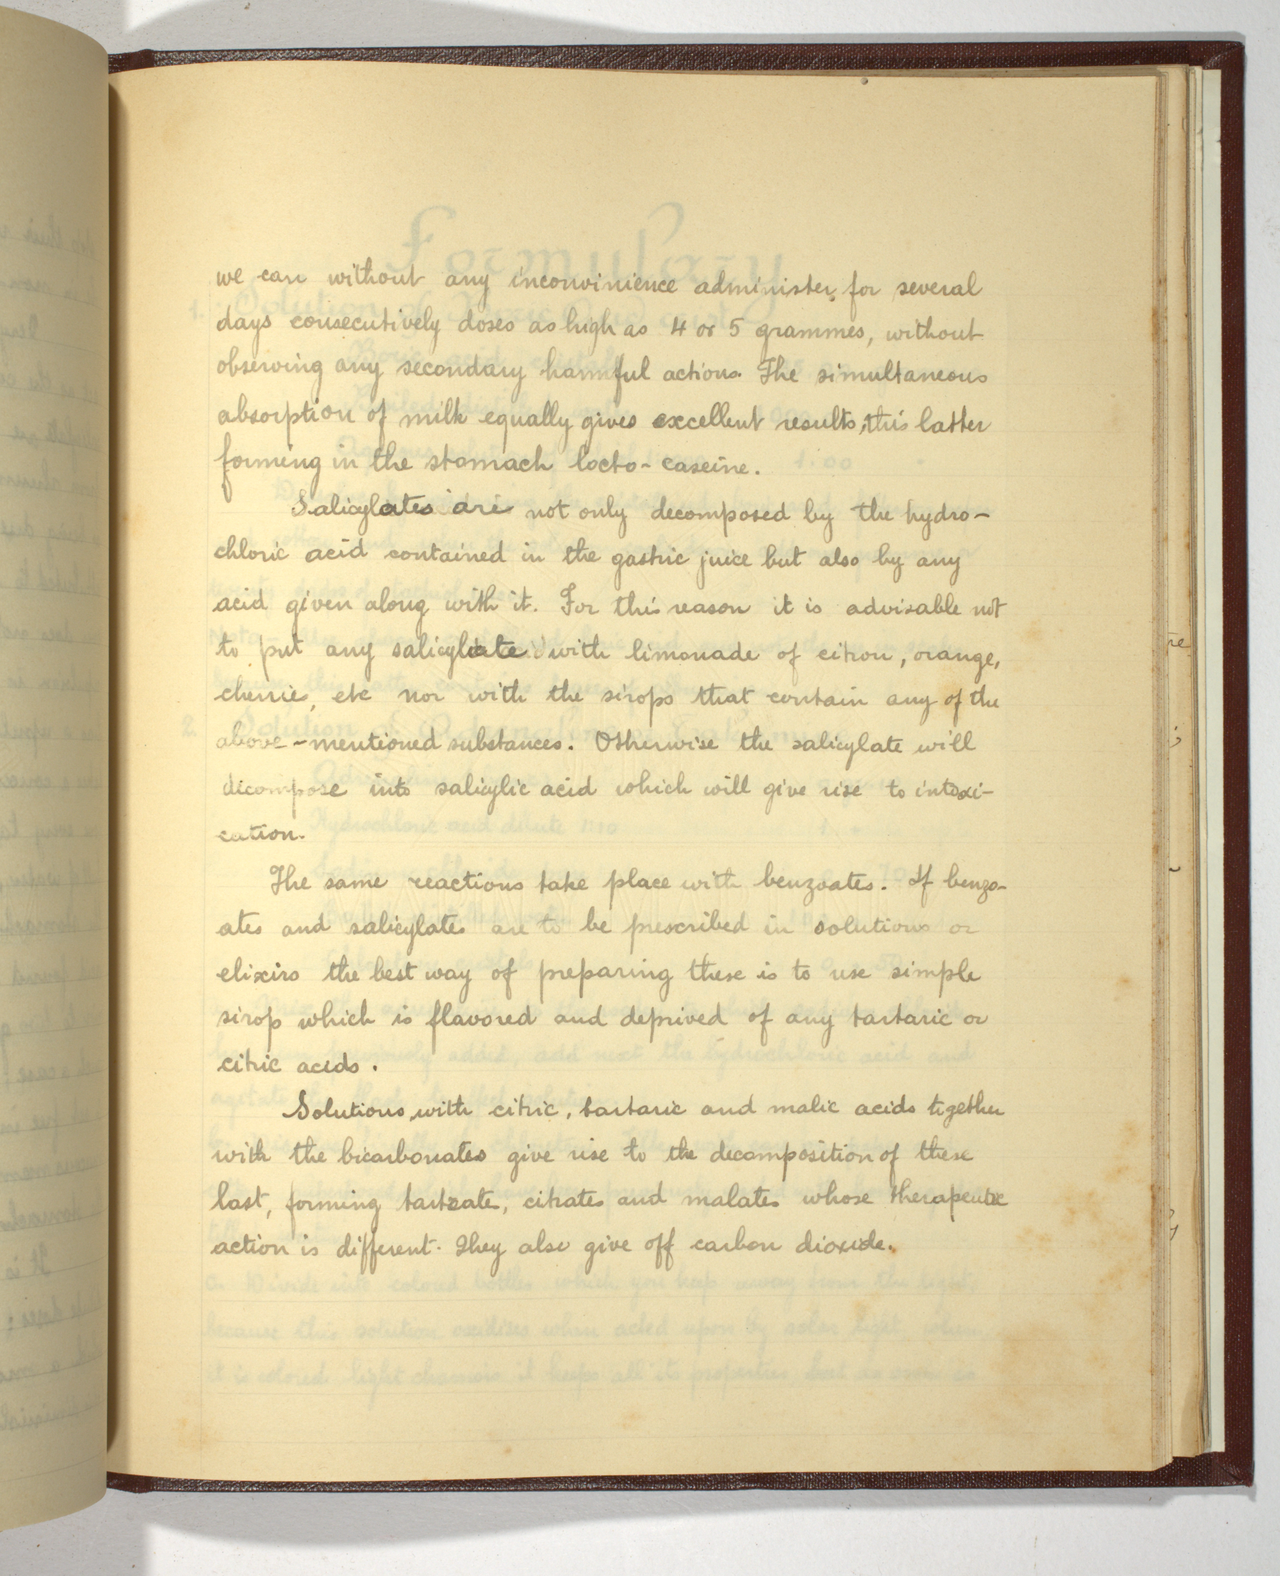 we can without any inconvinience administer, for several
days consecutively doses as high as 4 or 5 grammes, without
observing any secondary harmful actions. The simultaneous
absorption of milk equally gives excellent results, this latter
forming in the stomach locto-caseine.
Salicylates are not only decomposed by the hydro-
chloric acid contained in the gastric juice but also by any
acid given along with it. For this reason it is advisable not
to put any salicylate with limonade of citron, orange,
cherries, etc nor with the sirops that contain any of the
above-mentioned substances. Otherwise the salicylate will
dicompose into salicylic acid which will give rise to intoxi-
cation.
The same reactions take place with benzoates. If benzo-
ates and salicylates are to be prescribed in solutions or
elixirs the best way of preparing these is to use simple
sirop which is flavored and deprived of any tartaric or
citric acids.
Solutions with citric, tartaric and malic acids together
with the bicarbonates give rise to the decomposition of these
last, forming tartrate, citrates and malates whose therapeutic
action is different. They also give off carbon dioxide.